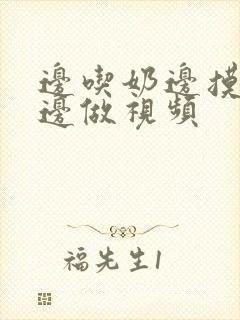 邊喫奶邊摸
邊做視頻
福先生1